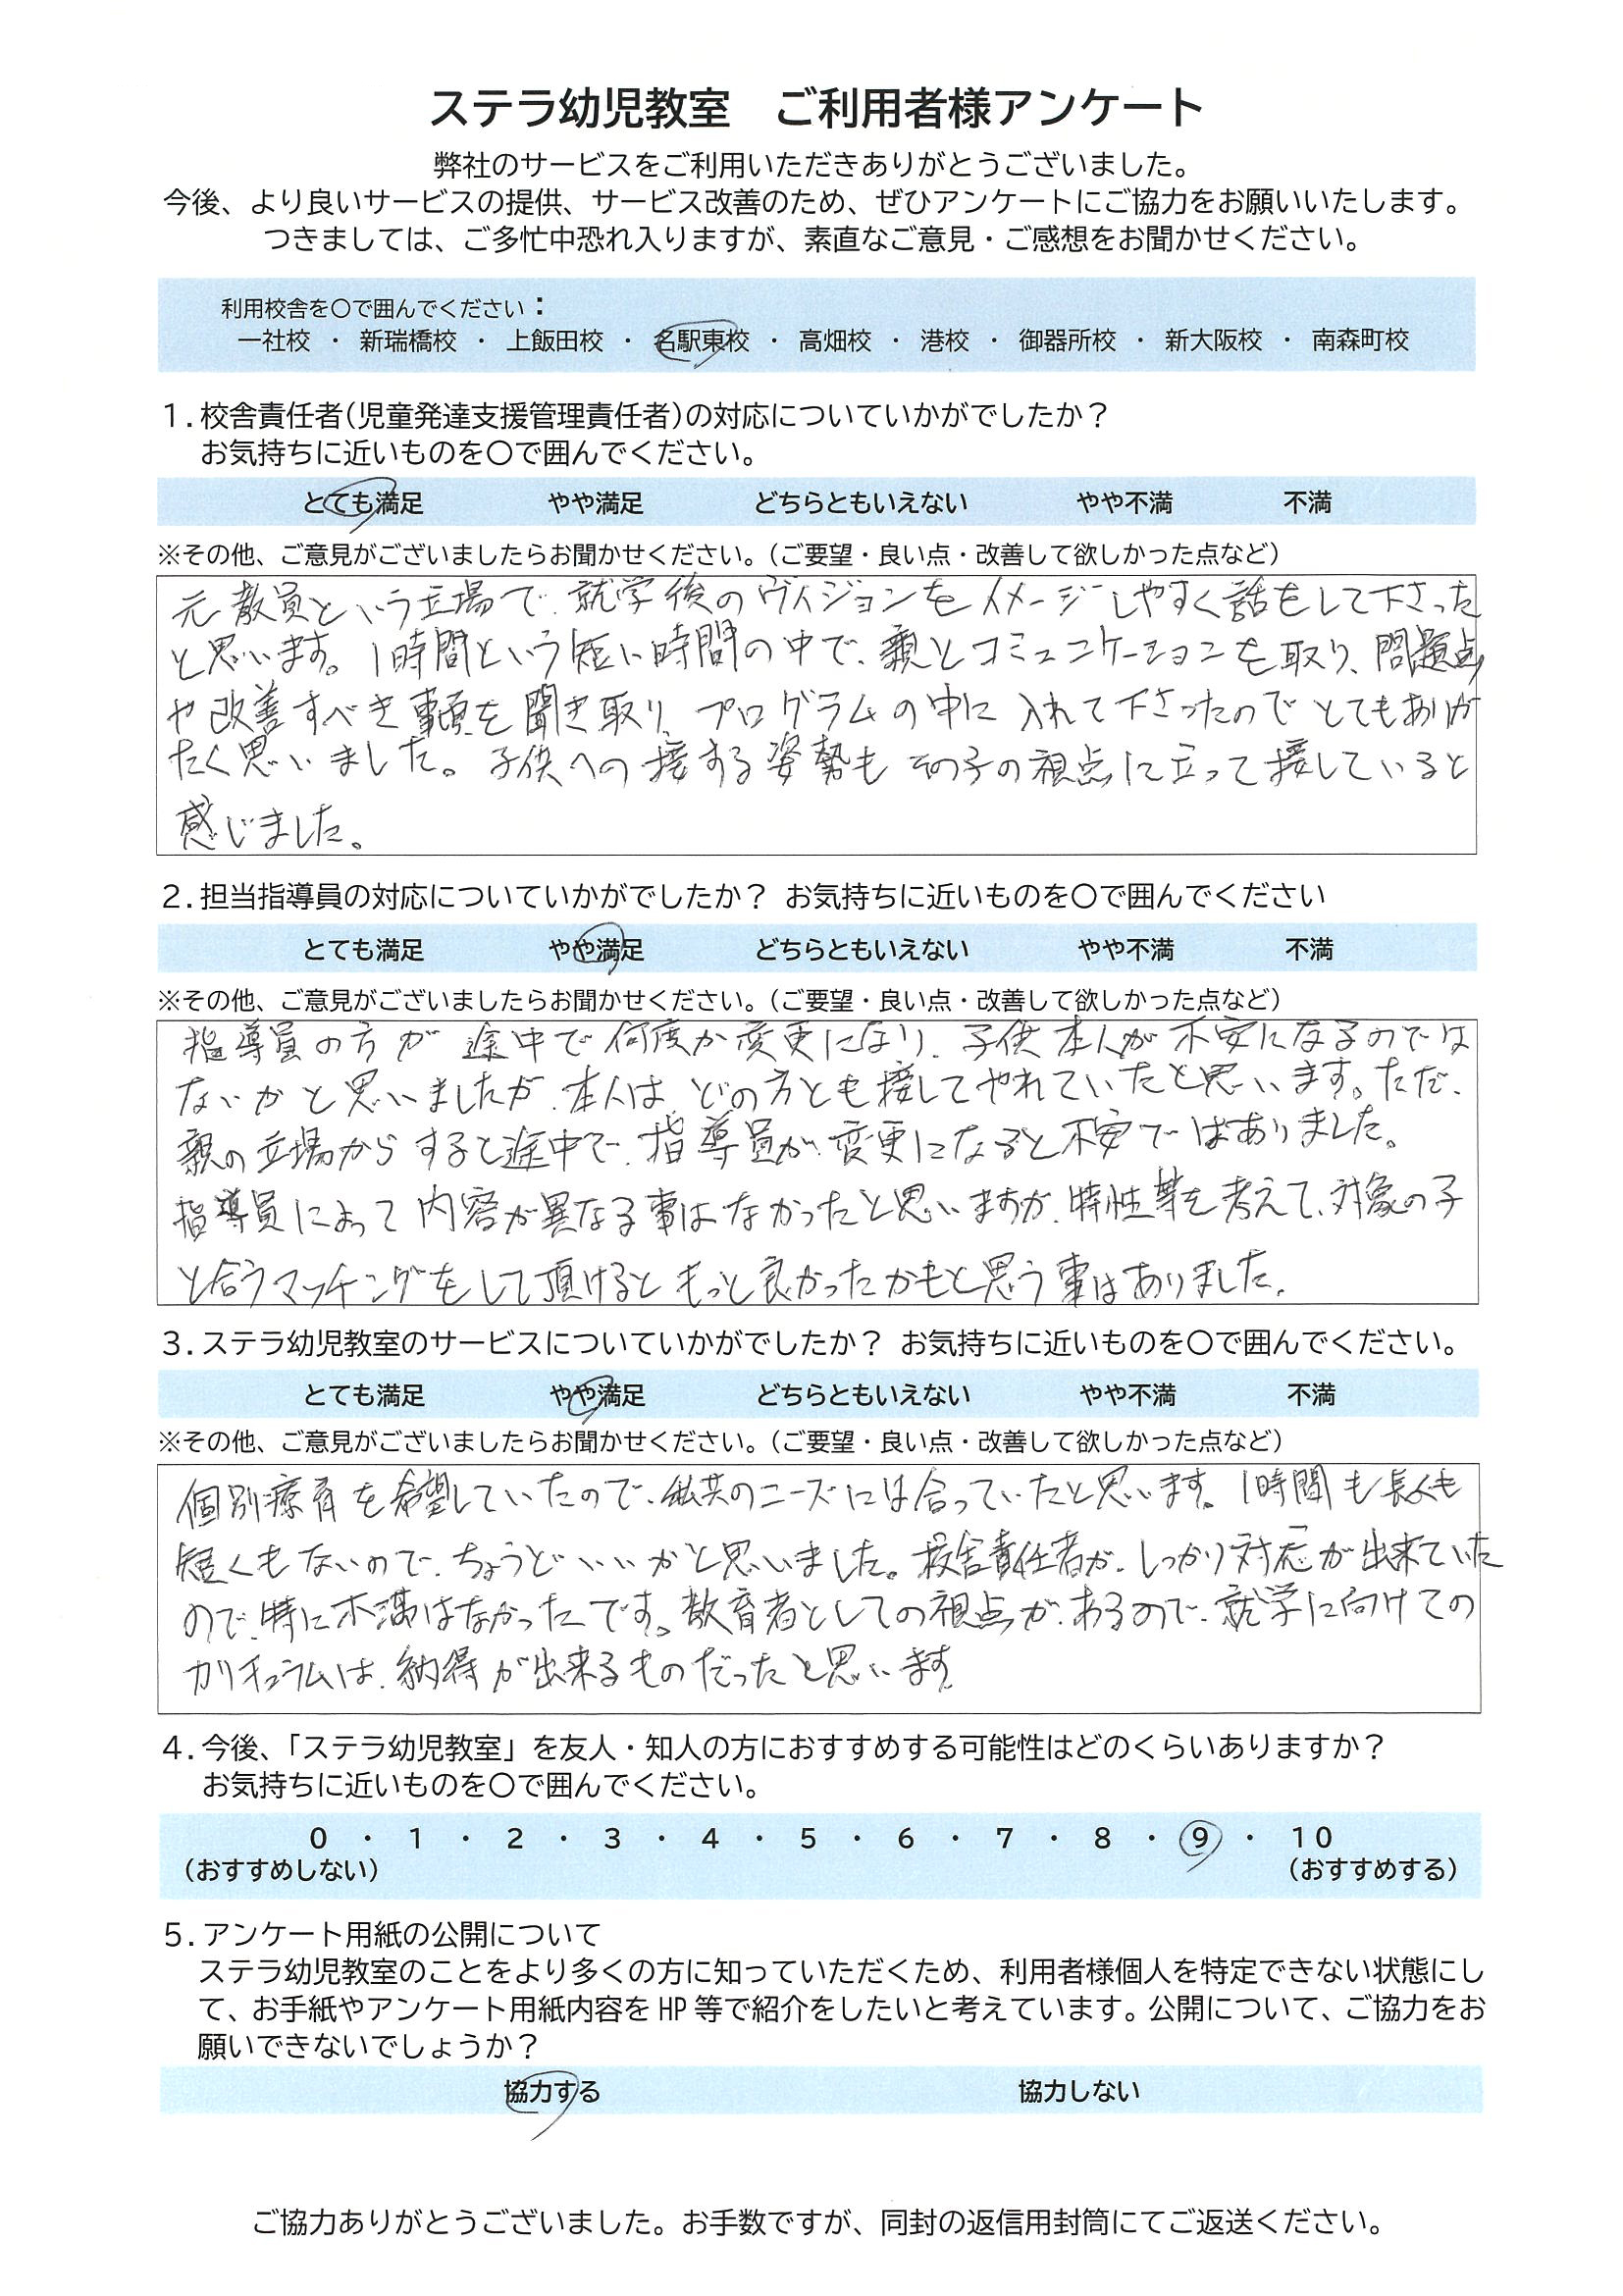 ステラ幼児教室　ご利用者様アンケート
弊社のサービスをご利用いただきありがとうございました。
今後、より良いサービスの提供、サービス改善のため、ぜひアンケートにご協力をお願いいたします。
つきましては、ご多忙中恐れ入りますが、素直なご意見・ご感想をお聞かせください。
利用校舎を〇で囲んでください：
一社校 ・ 新瑞橋校 ・ 上飯田校 ・ 名駅東校 ・ 高畑校 ・ 港校 ・ 御器所校 ・ 新大阪校 ・ 南森町校
1. 校舎責任者(児童発達支援管理責任者)の対応についていかがでしたか？
お気持ちに近いものを〇で囲んでください。
とても満足 やや満足 どちらともいえない やや不満 不満
※その他、ご意見がございましたらお聞かせください。（ご要望・良い点・改善して欲しかった点など）
元教員という立場で、就学後のヴィジョンをイメージしやすく話をして下さった
と思います。1時間という短い時間の中で、親とコミュニケーションを取り、問題点
や改善すべき事項を聞き取り、プログラムの中に入れて下さったのでとてもありが
たく思いました。子供への接する姿勢もその子の視点に立って接していると
感じました。
2. 担当指導員の対応についていかがでしたか？ お気持ちに近いものを〇で囲んでください
とても満足 やや満足 どちらともいえない やや不満 不満
※その他、ご意見がございましたらお聞かせください。（ご要望・良い点・改善して欲しかった点など）
指導員の方が途中で何度か変更になり、子供本人が不安になるのでは
ないかと思いましたが、本人は、どの方とも接してやれていたと思います。ただ、
親の立場からすると途中で、指導員が変更になると不安ではありました。
指導員によって内容が異なる事はなかったと思いますが、特性等を考えて、対象の子
と合うマッチングをして頂けるともっと良かったかもと思う事はありました。
3. ステラ幼児教室のサービスについていかがでしたか？ お気持ちに近いものを〇で囲んでください。
とても満足 やや満足 どちらともいえない やや不満 不満
※その他、ご意見がございましたらお聞かせください。（ご要望・良い点・改善して欲しかった点など）
個別療育を希望していたので、私共のニーズには合っていたと思います。1時間も長くも
短くもないので、ちょうどいいかと思いました。校舎責任者が、しっかり対応が出来ていた
ので、特に不満はなかったです。教育者としての視点が、あるので、就学に向けての
カリキュラムは、納得が出来るものだったと思います
4. 今後、「ステラ幼児教室」を友人・知人の方におすすめする可能性はどのくらいありますか？
お気持ちに近いものを〇で囲んでください。
0 ・ 1 ・ 2 ・ 3 ・ 4 ・ 5 ・ 6 ・ 7 ・ 8 ・ 9 ・ 10
（おすすめしない） （おすすめする）
5. アンケート用紙の公開について
ステラ幼児教室のことをより多くの方に知っていただくため、利用者様個人を特定できない状態にし
て、お手紙やアンケート用紙内容を HP 等で紹介をしたいと考えています。公開について、ご協力をお
願いできないでしょうか？
協力する 協力しない
ご協力ありがとうございました。お手数ですが、同封の返信用封筒にてご返送ください。